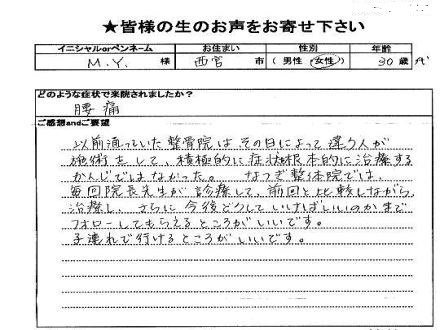 ★皆様の生のお声をお寄せ下さい
イニシャルorペンネーム お住まい 性別 年齢
M.Y. 様 西宮 市 (男性 女性) 30歳代
どのような症状で来院されましたか？
腰痛
ご感想andご要望
以前通っていた整骨院はその日によって違う人が
施術をして、積極的に症状根本的に治療する
かんじではなかった。 なつぎ整体院では、
毎回院長先生が診療して、前回と比較しながら
治療し、さらに今後どうしていけばいいのかまで
フォローしてもらえるところがいいです。
子連れで行けるところがいいです。